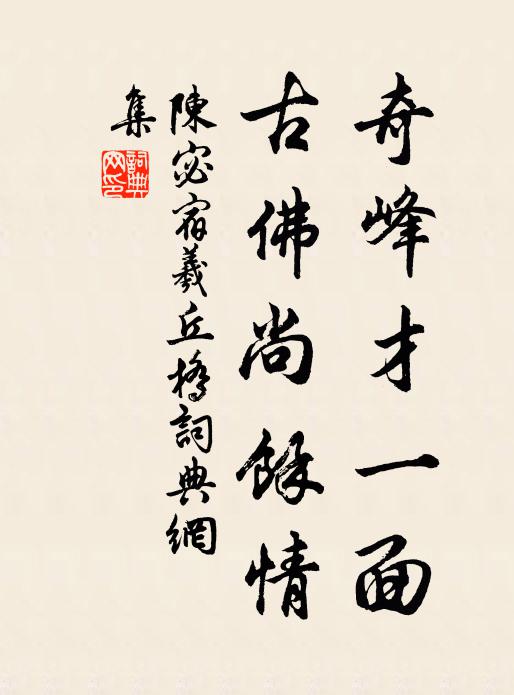 奇峰才一面
古佛尚餘情
陳宓宿羲丘橋詞典網
集
詞典
网印